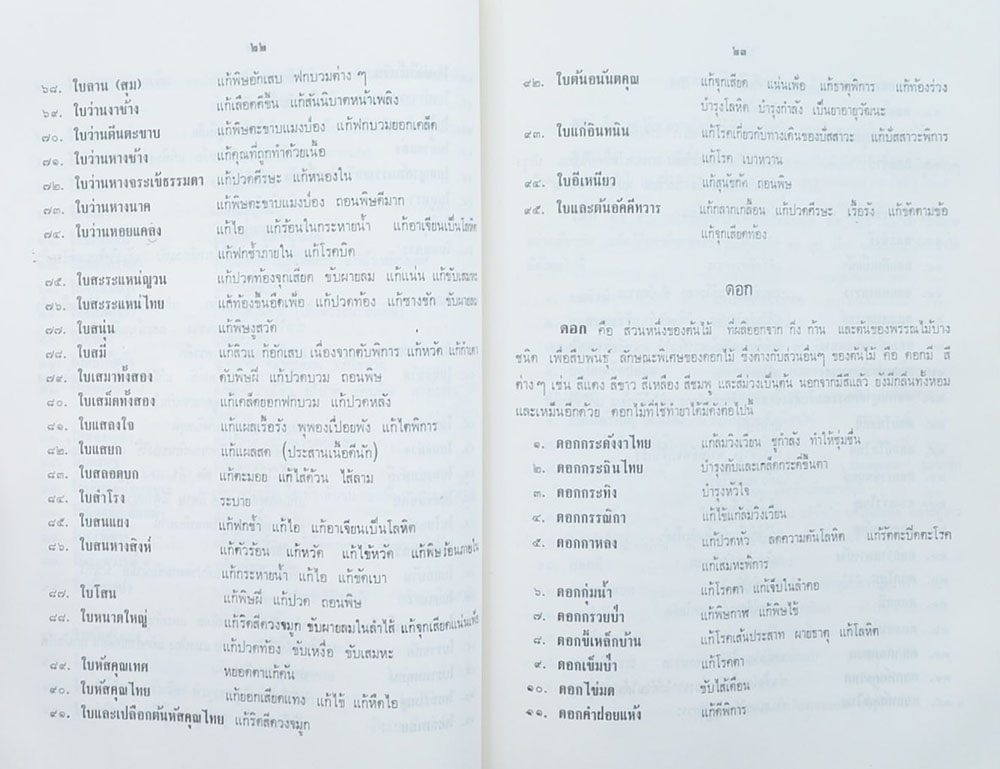 ๒๒
๖๘. ใบลาน (สุม) แก้พิษอักเสบ ฟกบวมต่าง ๆ
๖๙. ใบว่านงาช้าง แก้เลือดตีขึ้น แก้สันนิบาตหน้าเพลิง
๗๐. ใบว่านตีนตะขาบ แก้พิษตะขาบแมงป่อง แก้ฟกบวมยอกเคล็ด
๗๑. ใบว่านหางช้าง แก้คุณที่ถูกทำด้วยเนื้อ
๗๒. ใบว่านหางจระเข้ธรรมดา แก้ปวดศีรษะ แก้หนองใน
๗๓. ใบว่านหางนาค แก้พิษตะขาบแมงป่อง ถอนพิษดีมาก
๗๔. ใบว่านหอยแคลง แก้ไอ แก้ร้อนในกระหายน้ำ แก้อาเจียนเป็นโลหิต
แก้ฟกช้ำภายใน แก้โรคบิด
๗๕. ใบสะระแหน่ญวน แก้ปวดท้องจุกเสียด ขับผายลม แก้แน่น แก้ขับเสมหะ
๗๖. ใบสะระแหน่ไทย แก้ท้องขึ้นอืดเฟ้อ แก้ปวดท้อง แก้ซางชัก ขับผายลม
๗๗. ใบสนุ่น แก้พิษงูสวัด
๗๘. ใบสมี แก้สิวแก้อักเสบ เนื่องจากตับพิการ แก้หวัด แก้กำเดา
๗๙. ใบเสมาทั้งสอง ดับพิษฝี แก้ปวดบวม ถอนพิษ
๘๐. ใบเสม็ดทั้งสอง แก้เคล็ดยอกฟกบวม แก้ปวดหลัง
๘๑. ใบแสลงใจ แก้แผลเรื้อรัง พุพองเปื่อยพัง แก้ไตพิการ
๘๒. ใบแสยก แก้แผลสด (ประสานเนื้อดีนัก)
๘๓. ใบสลอดบก แก้ตะมอย แก้ไส้ด้วน ไส้ลาม
๘๔. ใบสำโรง ระบาย
๘๕. ใบสนแผง แก้ฟกช้ำ แก้ไอ แก้อาเจียนเป็นโลหิต
๘๖. ใบสนหางสิงห์ แก้ตัวร้อน แก้หวัด แก้ไข้หวัด แก้พิษร้อนภายใน
แก้กระหายน้ำ แก้ไอ แก้ขัดเบา
๘๗. ใบโสน แก้พิษฝี แก้ปวด ถอนพิษ
๘๘. ใบหนาดใหญ่ แก้ริดสีดวงจมูก ขับผายลมในลำไส้ แก้จุกเสียดแน่นเฟ้อ
แก้ปวดท้อง ขับเหงื่อ ขับเสมหะ
๘๙. ใบหัสคุณเทศ หยอดตาแก้คัน
๙๐. ใบหัสคุณไทย แก้ยอกเสียดแทง แก้ไข้ แก้หืดไอ
๙๑. ใบและเปลือกต้นหัสคุณไทย แก้ริดสีดวงจมูก
๒๓
๙๒. ใบต้นอนันตคุณ แก้จุกเสียด แน่นเฟ้อ แก้ธาตุพิการ แก้ท้องร่วง
บำรุงโลหิต บำรุงกำลัง เป็นยาอายุวัฒนะ
๙๓. ใบแก่อินทนิน แก้โรคเกี่ยวกับทางเดินของปัสสาวะ แก้ปัสสาวะพิการ
แก้โรค เบาหวาน
๙๔. ใบอีเหนียว แก้สุนัขกัด ถอนพิษ
๙๕. ใบและต้นอัคคีทวาร แก้กลากเกลื้อน แก้ปวดศีรษะ เรื้อรัง แก้ขัดตามข้อ
แก้จุกเสียดท้อง
ดอก
ดอก คือ ส่วนหนึ่งของต้นไม้ ที่ผลิออกจาก กิ่ง ก้าน และต้นของพรรณไม้บาง
ชนิด เพื่อสืบพันธุ์ ลักษณะพิเศษของดอกไม้ ซึ่งต่างกับส่วนอื่นๆ ของต้นไม้ คือ ดอกมี สี
ต่างๆ เช่น สีแดง สีขาว สีเหลือง สีชมพู และสีม่วงเป็นต้น นอกจากมีสีแล้ว ยังมีกลิ่นทั้งหอม
และเหม็นอีกด้วย ดอกไม้ที่ใช้ทำยาได้มีดังต่อไปนี้
๑. ดอกกระดังงาไทย แก้ลมวิงเวียน ชูกำลัง ทำให้ชุ่มชื่น
๒. ดอกกระถินไทย บำรุงตับและเกล็ดกระดี่ขึ้นตา
๓. ดอกกระทิง บำรุงหัวใจ
๔. ดอกกรรณิกา แก้ไข้แก้ลมวิงเวียน
๕. ดอกกาหลง แก้ปวดหัว ลดความดันโลหิต แก้รัตตะปิตตะโรค
แก้เสมหะพิการ
๖. ดอกกุ่มน้ำ แก้โรคตา แก้เจ็บในลำคอ
๗. ดอกกรวยป่า แก้พิษกาฬ แก้พิษไข้
๘. ดอกขี้เหล็กบ้าน แก้โรคเส้นประสาท ผายธาตุ แก้โลหิต
๙. ดอกเข็มป่า แก้โรคตา
๑๐. ดอกไข่มด ขับไส้เดือน
๑๑. ดอกคำฝอยแห้ง แก้ดีพิการ